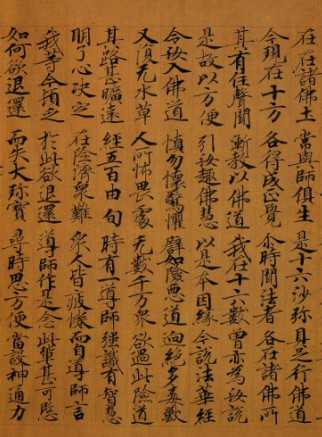 在在諸佛土 常與師俱生 是十六沙弥 具足行佛道
今現在十方 各得成正覺 尒時聞法者 各在諸佛所
其有住聲聞 漸教以佛道 我在十六數 曾亦為汝說
是故以方便 引汝趣佛慧 以是本因緣 今說法華經
令汝入佛道 慎勿懷驚懼 譬如險惡道 迴絕多毒獸
又復无水草 人所怖畏處 无數千万衆 欲過此險道
其路甚曠遠 經五百由旬 時有一導師 強識有智慧
明了心決定 在險濟衆難 衆人皆疲惓 而白導師言
我等今頓乏 於此欲退還 導師作是念 此輩甚可愍
如何欲退還 而失大珎寶 尋時思方便 當設神通力